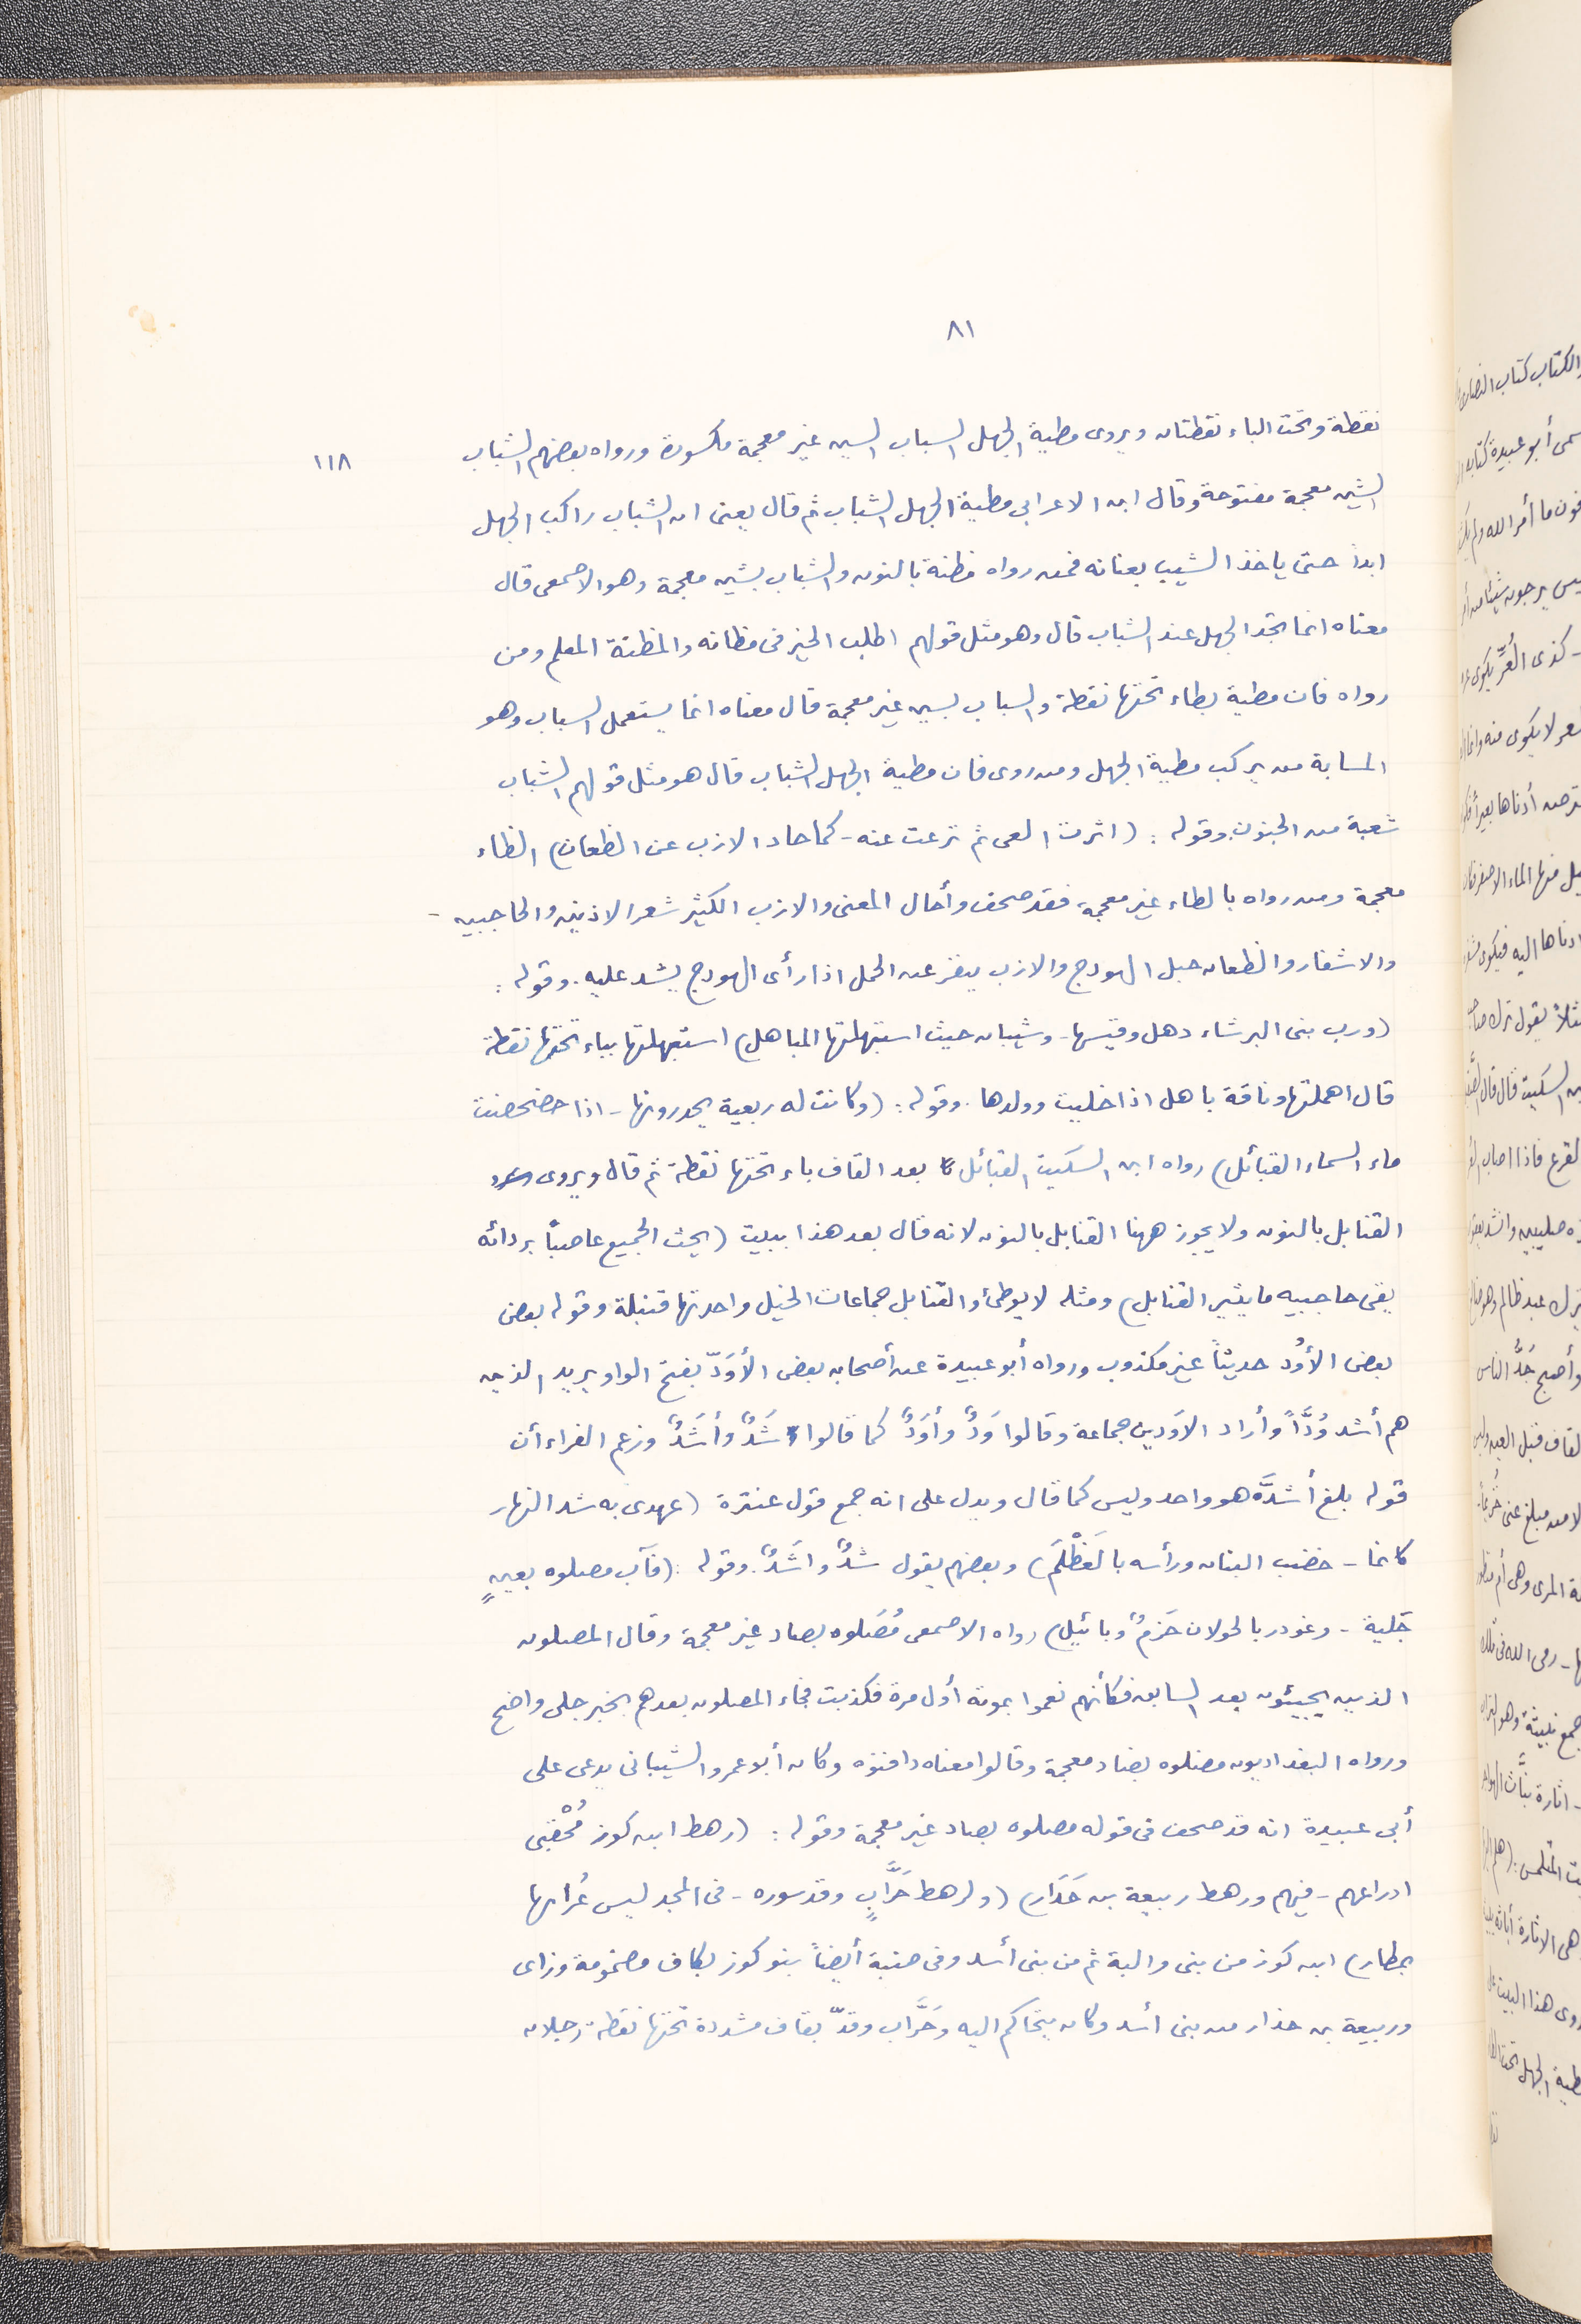 ٨١
نقطة وتحت الباء نقطتان ويروى مطية الجهل السباب السين غير معجمة مكسورة ورواه بعضهم الشباب
١١٨
الشين معجمة مفتوحة وقال ابن الاعرابى مطية الجهل الشباب ثم قال يعنى ان الشباب راكب الجهل
ابداً حتى ياخذ الشيب بعنانه فمن رواه مظنة بالنون والشباب بشين معجمة وهو الاصمعى قال
معناه انما تجد الجهل عند الشباب قال وهو مثل قولهم اطلب الخير فى مظانه والمظنة المعلم ومن
رواه فان مطية بطاء تحتها نقطة والسباب بسين غير معجمة قال معناه انما يستعمل السباب وهو
المسابة من يركب مطية الجهل ومن روى فان مطية الجهل الشباب قال هو مثل قولهم الشباب
شعبة من الجنون. وقوله : (اثرت الغى ثم نزعت عنه - كما حاد الازب عن الظعان) الظاء
معجمة ومن رواه بالطاء غير معجمة فقد صحف وأحال المعنى والازب الكثير شعر الاذنين والحاجبين -
والاشفار والظعان حبل الهودج والازب ينفر عن الحمل اذا رأى الهودج يشد عليه. وقوله :
(ورب بنى البرشاء ذهل وقيسها - وشيبان حيث استبهلتها المباهل) استبهلتها بباء تحتها نقطة
قال اهملتها وناقة باهل اذا خليت وولدها. وقوله : (وكانت له ربعية يحذرونها - اذا خضخضت
ماء السماء القبائل) رواه ابن السكيت القبائل بعد القاف باء تحتها نقطة ثم قال ويروى
القنابل بالنون ولا يجوز ههنا القنابل بالنون لانه قال بعد هذا ببيت (يحث الجميع عاصباً بردائه
يقى حاجبيه ما يثير القنابل) ومثله لا يوطئ والقنابل جماعات الخيل واحدتها قنبلة وقوله بعض
بعض الأوُد حديثاً غير مكذوب ورواه أبو عبيدة عن أصحابه بعض الأوَدّ بفتح الواو يريد الذين
هم أشد وُدَّاً وأراد الاوَدين جماعة وقالوا وَدٌّ وأوَدٌّ كما قالوا شَدٌّ وأشَدٌّ وزعم الفراء أن
قوله بلغ أشدَّه هو واحد وليس كما قال ويدل على انه جمع قول عنترة (عهدى به شد النهار
كانما - خضب البنان ورأسه بالعَظْلَم) وبعضهم يقول شدٌّ واشَدٌّ. وقوله : (فآب مصلوه بعينٍ
جَلية - وغودر بالجولان حَزمٌ وبائيل) رواه الاصمعى مُصَلوه بصاد غير معجمة وقال المصلون
الذين يجيئون بعد السابق فكأنهم نعموا بموته أول مرة فكذبت فجاء المصلون بعدهم بخبر جلى واضح
ورواه البغداديون مضلوه بضاد معجمة وقالوا معناه دافنوه وكان أبو عمرو الشيبانى يدعى على
أبى عبيدة انه قد صحف فى قوله مصلوه بصاد غير معجمة وقوله : (رهط ابن كوز مُحْقبى
ادراعهم - فيهم ورهط ربيعة بن حَذار) (ولرهط حَرَّابٍ وقد سوره - فى المجد ليس غُرابها
بمطار) ابن كوز من بنى والبة ثم من بنى أسد وفى ضبة أيضاً بنو كوز بكاف مضمومة وزاى
وربيعة بن حذار من بنى أسد وكان يتحاكم اليه وحَرَّاب وقدّ بقاف مشددة تحتها نقطة رجلان